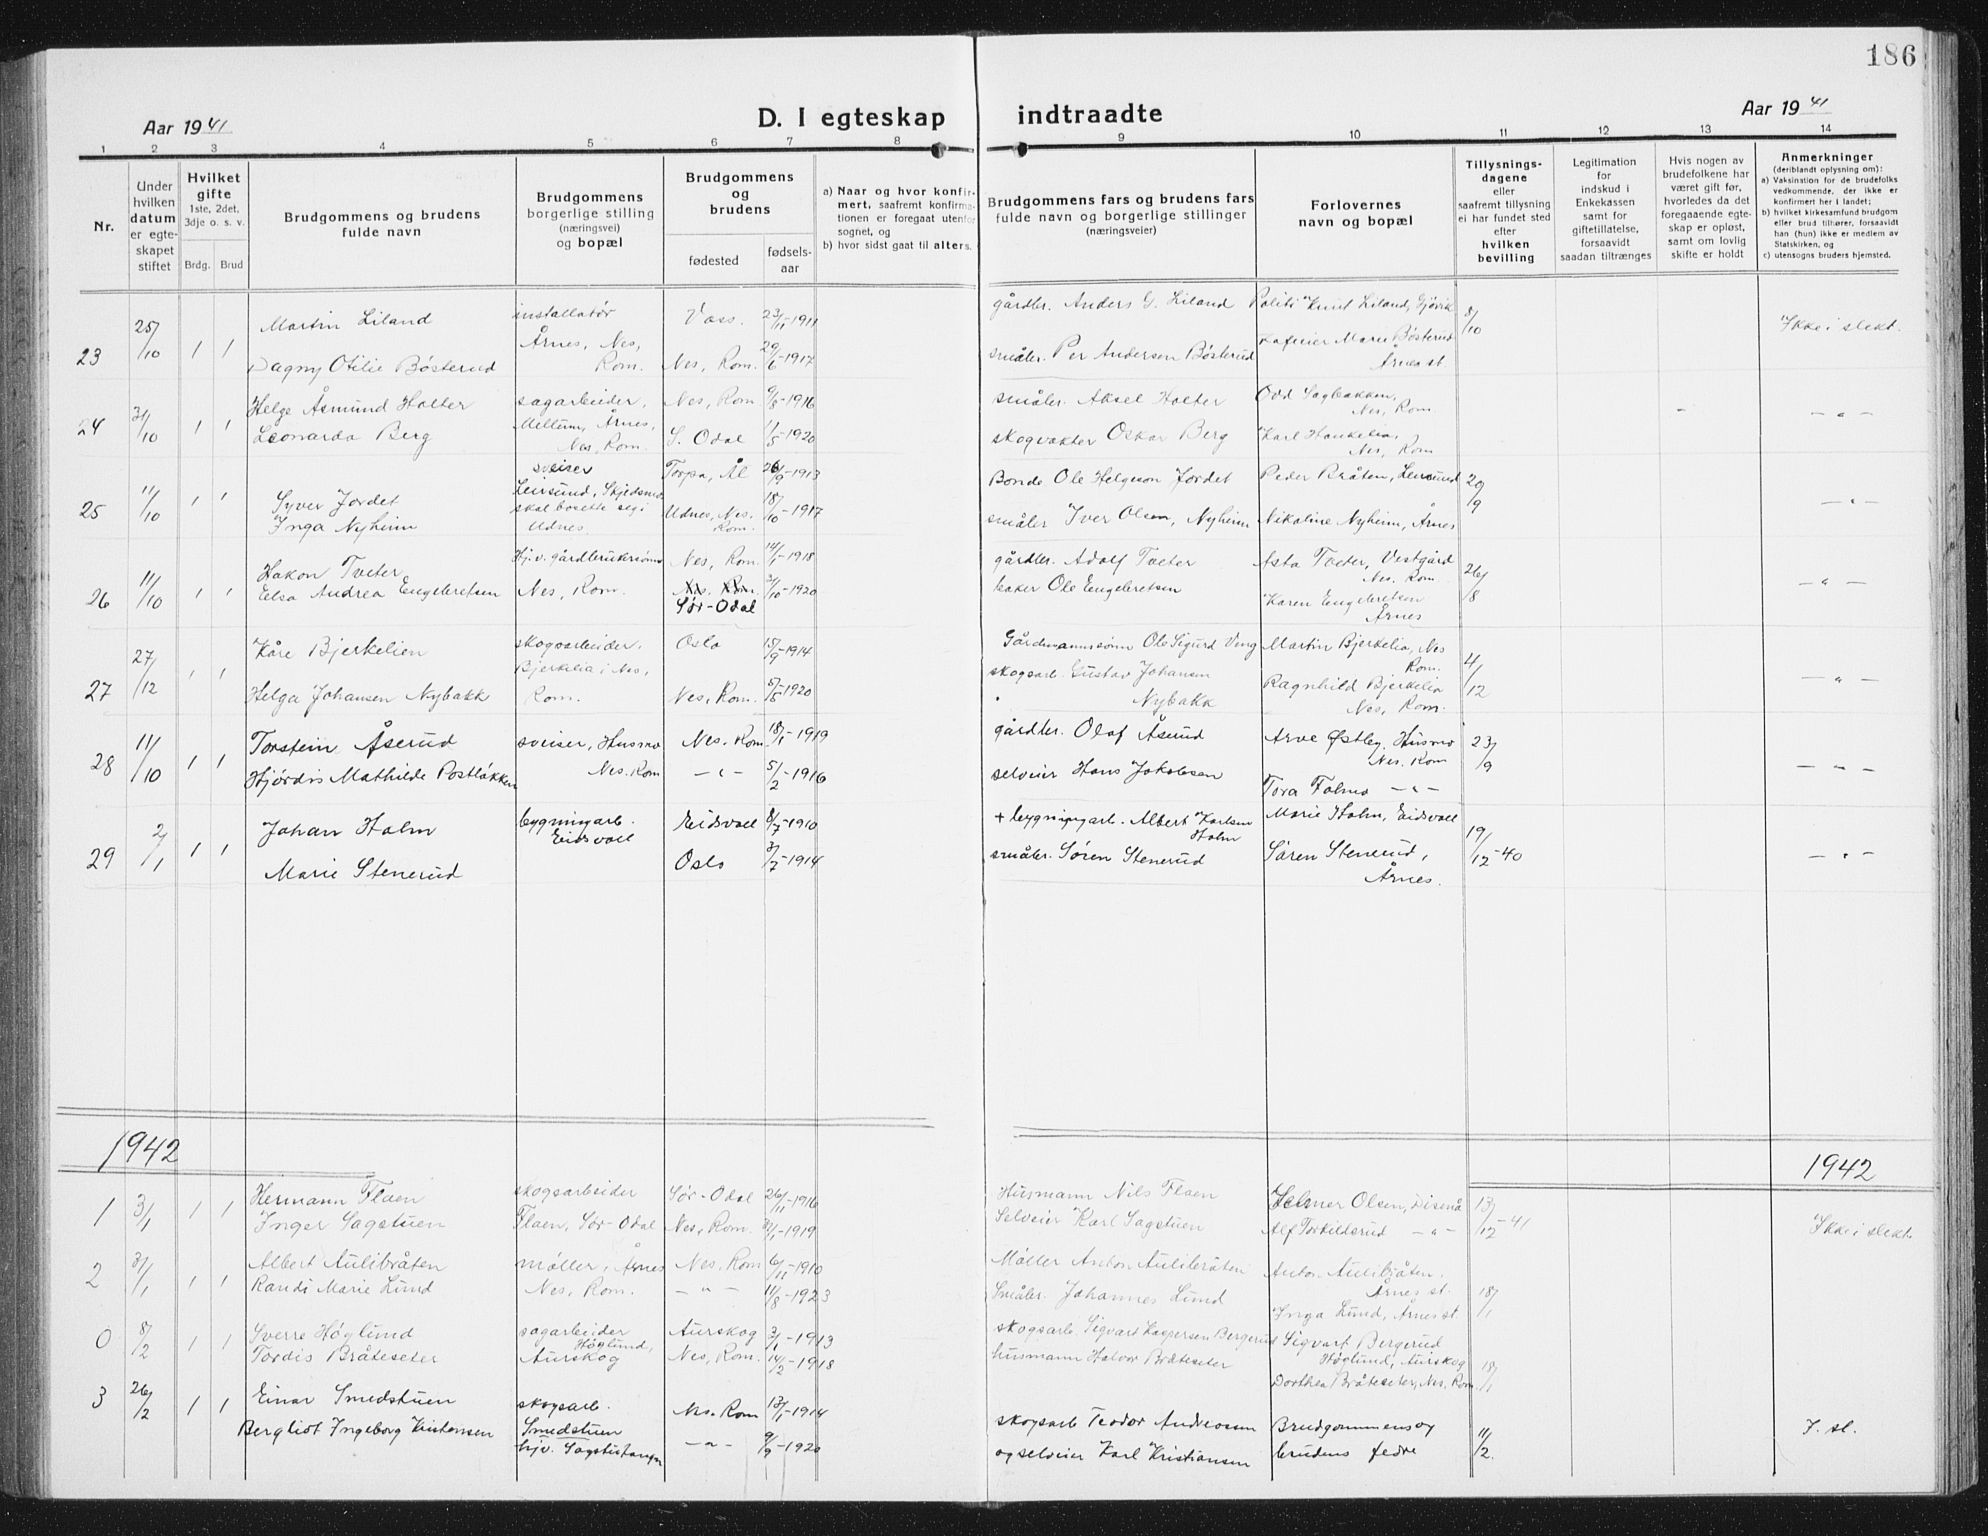 186
Aar 1941
D. I egteskap indtraadte
Aar 1941
1 2 3 4 5 6 7 8 9 10 11 12 13 14
Nr.
Under hvilken datum er egte-skapet stiftet
Hvilket gifte
1ste, 2det, 3dje o. s. v.
Brdg. Brud
Brudgommens og brudens fulde navn
Brudgommens borgerlige stilling (næringsvei) og bopæl
Brudgommens og brudens
fødested
fødsels-aar
a) Naar og hvor konfir-mert, saafremt konfirma-tionen er foregaat utenfor sognet, og
b) hvor sidst gaat til alters.
Brudgommens fars og brudens fars fulde navn og borgerlige stillinger (næringsveier)
Forlovernes navn og bopæl
Tillysnings-dagene eller saafremt tillysning ei har fundet sted efter hvilken bevilling
Legitimation for indskud i Enkekassen samt for giftetillatelse, forsaavidt saadan tiltrænges
Hvis nogen av brudefolkene har været gift før, hvorledes da det foregaaende egte-skap er opløst, samt om lovlig skifte er holdt
Anmerkninger
(deriblandt oplysning om):
a) Vaksination for de brudefolks vedkommende, der ikke er konfirmert her i landet;
b) hvilket kirkesamfund brudgom eller brud tilhører, forsaavidt han (hun) ikke er medlem av Statskirken, og
c) utensogns bruders hjemsted.
23 25/10 1 1 Martin Liland installatør Årnes, Nes, Rom. Voss. 23/11-1911 gårdbr. Anders G. Liland Politi Knut Liland, Gjøvik 8/10 Ikke i slekt.
Dagny Otilie Bøsterud Nes, Rom. 29/6-1917 småbr. Per Andersen Bøsterud Marie Bøsterud Årnes st.
24 31/10 1 1 Helge Åsmund Holter sagarbeider, Årnes, Nes, Rom. Nes, Rom 9/8-1916 småbr. Aksel Holter Odd Sagbakken, Nes, Rom. - " -
Leonarda Berg S. Odal 11/5-1920 skogvakter Oskar Berg Karl Haukelia, Nes, Rom
25 11/10 1 1 Syver Jordet sveiser Leirsund, Skjedsmo skal bosette seg i Udnes Torpa, Ål 26/9-1913 Bonde Ole Helgeson Jordet Peder Bråten, Leirsund 20/9 - " -
Inga Nyheim Udnes, Nes, Rom. 18/10-1917 småbr Iver Olsen, Nyheim Nikoline Nyheim, Årnes
26 11/10 1 1 Hakon Tveter Hj.v. gårdbrukersønn Nes, Rom. Nes, Rom. 14/1-1918 gårdbr. Adolf Tveter Asta Tveter, Vestgård Nes, Rom. 26/8 - " -
Elsa Andrea Engebretsen Nes. Rom. Sør-Odal 3/10-1920 baker Ole Engebretsen Karen Engebretsen Årnes
27 27/12 1 1 Kåre Bjerkelien skogsarbeider, Bjerkelia i Nes, Rom. Oslo 15/9-1914 Gårdmannssønn Ole Sigurd Veng Martin Bjerkelia, Nes Rom. 4/12 - " -
Helga Johansen Nybakk Nes, Rom. 5/5-1920 skogsarb. Gustav Johansen Nybakk Ragnhild Bjerkelia Nes, Rom.
28 11/10 1 1 Torstein Åserud sveiser, Husmo Nes. Rom Nes. Rom 18/1-1919 gårdbr. Olaf Åserud Arve Østby, Husmo Nes. Rom 23/9 - " -
Hjørdis Mathilde Postløkken - " - 5/2-1916 selveier Hans Jakobsen Tora Folmo - " -
29 2/1 1 1 Johan Holm bygningarb. Eidsvoll Eidsvoll 8/7-1910 + bygningarb. Albert Karlsen Holm Marie Holm, Eidsvoll 19/12-40 - " -
Marie Stenerud Oslo 3/7-1914 småbr. Søren Stenerud Søren Stenerud, Årnes.
1942
1942
1 3/1 1 1 Hermann Flaen skogsarbeider Flaen, Sør-Odal Sør-Odal 26/11-1916 Husmann Nils Flaen Helmer Olsen, Disenå 13/12-41 Ikke i slekt
Inger Sagstuen Nes, Rom. -1919 Selveier Karl Sagstuen Alf Torkildsrud - " -
2 3/1 1 1 Albert Aulibråten møller, Årnes Nes, Rom. Nes. Rom 6/11-1910 Møller Anton Aulibråten Anton Aulibråten, Årnes st. 18/1
Randi Marie Lund - " - 11/8-1923 Småbr. Johannes Lund Inga Lund, Årnes st.
0 8/2 1 1 Sverre Høglund sagarbeider Høglund, Aurskog Aurskog 3/1-1913 skogsarb. Sigvart Kaspersen Bergerud Sigvart Bergerud Høglund, Aurskog 18/1
Tordis Bråteseter Nes, Rom. 14/2-1918 husmann Halvor Bråteseter Dorthea Bråteseter, Nes, Rom.
3 26/2 1 1 Einar Smedstuen skogsarb. Smedstuen Nes. Rom 13/1-1914 skogsarb Teodor Andreassen Brudgommens og 11/2. I. sl.
Bergliot Ingeborg Kristensen hjv. Sagstuhaugen - " - 9/9-1920 og selveier Karl Kristiansen brudens fedre